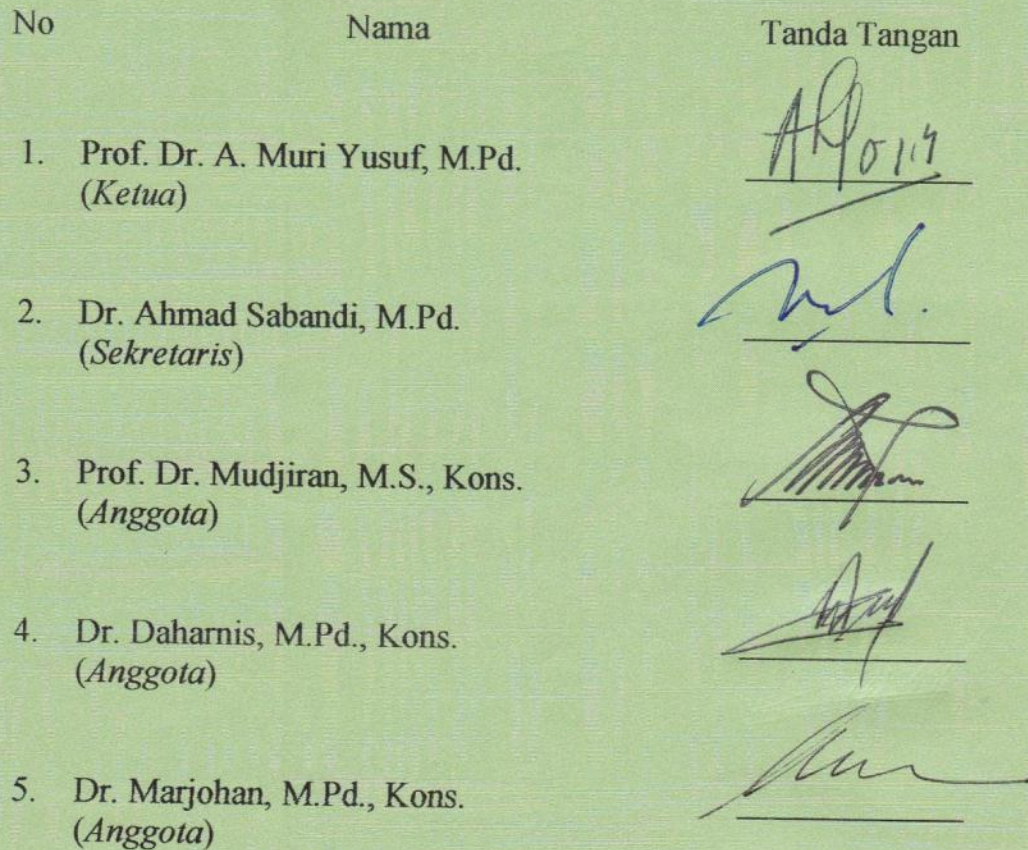 No Nama Tanda Tangan
1. Prof. Dr. A. Muri Yusuf, M.Pd.
(Ketua)
2. Dr. Ahmad Sabandi, M.Pd.
(Sekretaris)
3. Prof. Dr. Mudjiran, M.S., Kons.
(Anggota)
4. Dr. Daharnis, M.Pd., Kons.
(Anggota)
5. Dr. Marjohan, M.Pd., Kons.
(Anggota)